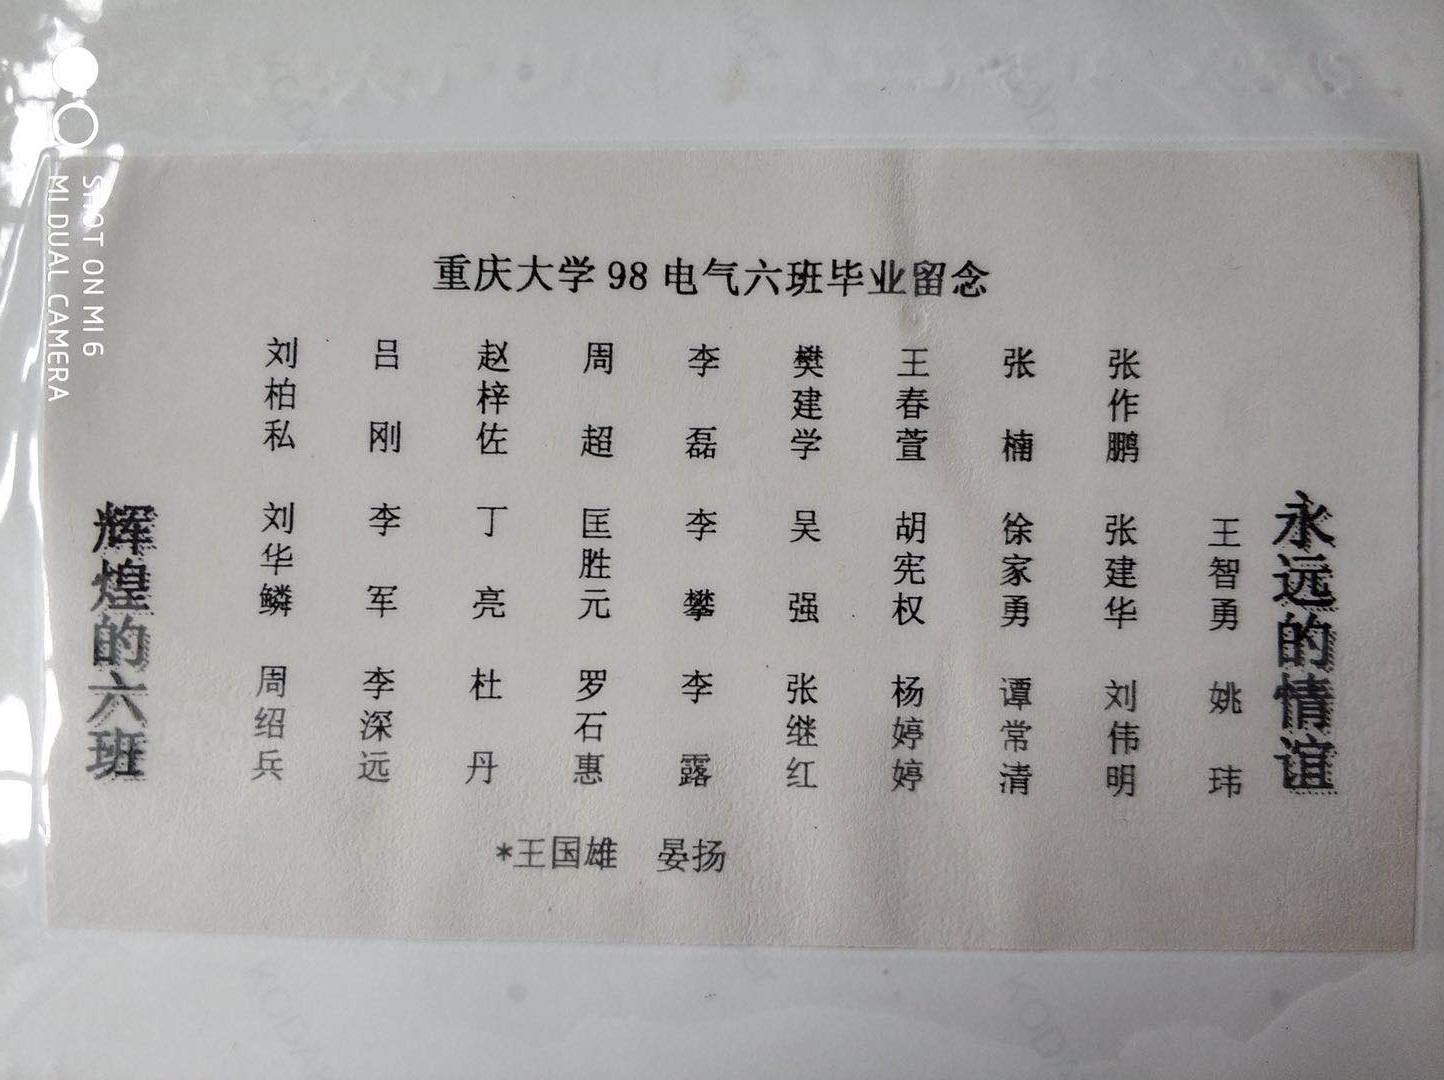 重庆大学98电气六班毕业留念
刘柏私 吕刚 赵梓佐 周超 李磊 樊建学 王春萱 张楠 张作鹏
刘华鳞 李军 丁亮 匡胜元 李攀 吴强 胡宪权 徐家勇 张建华 王智勇
周绍兵 李深远 杜丹 罗石惠 李露 张继红 杨婷婷 谭常清 刘伟明 姚玮
*王国雄 晏扬
辉煌的六班
永远的情谊
SHOT ON MI 6
MI DUAL CAMERA